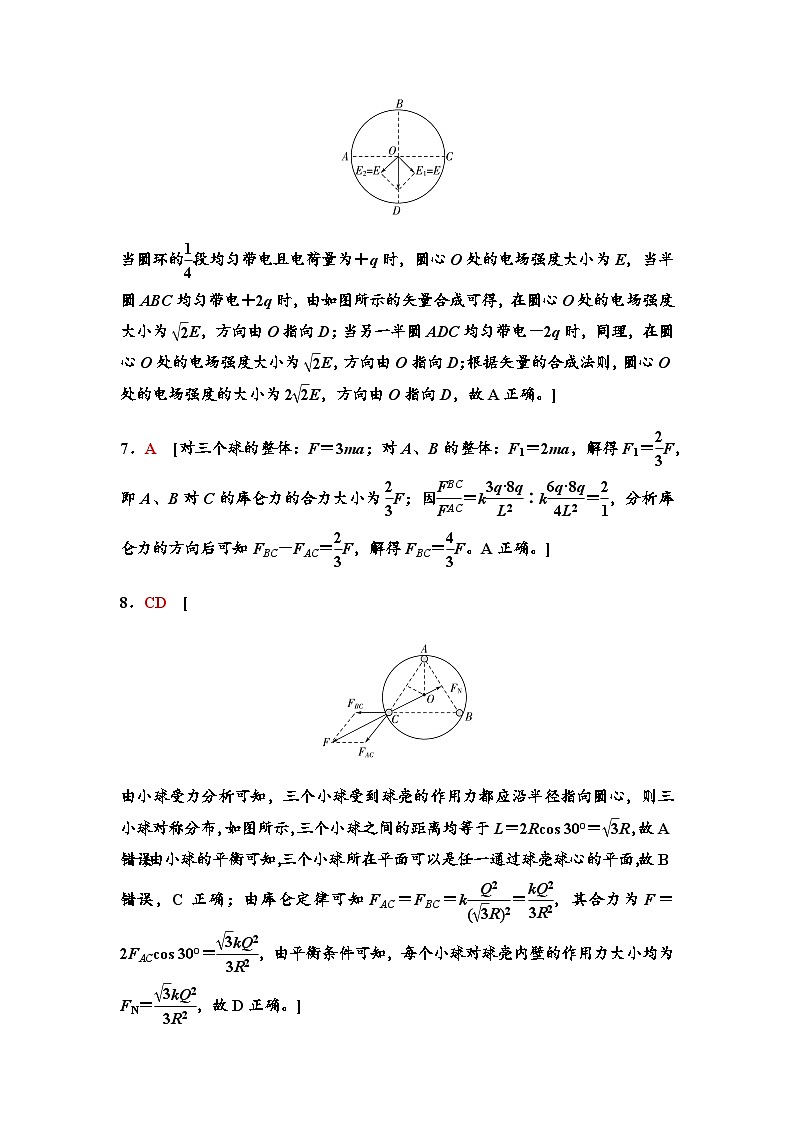 B
A
O
C
E₂=E
E₁=E
D
当圆环的1/4段均匀带电且电荷量为+q 时，圆心 O 处的电场强度大小为 E，当半
圆 ABC 均匀带电+2q 时，由如图所示的矢量合成可得，在圆心 O 处的电场强度
大小为 √2E，方向由 O 指向 D；当另一半圆 ADC 均匀带电−2q 时，同理，在圆
心 O 处的电场强度大小为 √2E，方向由 O 指向 D；根据矢量的合成法则，圆心 O
处的电场强度的大小为 2√2E，方向由 O 指向 D，故 A 正确。]
7．A [对三个球的整体：F＝3ma；对 A、B 的整体：F₁＝2ma，解得 F₁＝2/3F，
即 A、B 对 C 的库仑力的合力大小为2/3F；因F_BC/F_AC＝k3q·8q/L²∶k6q·8q/4L²＝2/1，分析库
仑力的方向后可知 F_BC－F_AC＝2/3F，解得 F_BC＝4/3F。A 正确。]
8．CD [
A
F_N
F_BC
O
C
B
F
F_AC
由小球受力分析可知，三个小球受到球壳的作用力都应沿半径指向圆心，则三
小球对称分布，如图所示，三个小球之间的距离均等于 L＝2Rcos 30°＝√3R，故 A
错误；由小球的平衡可知，三个小球所在平面可以是任一通过球壳球心的平面，故 B
错误，C 正确；由库仑定律可知 F_AC＝F_BC＝kQ²/(√3R)²＝kQ²/3R²，其合力为 F＝
2F_ACcos 30°＝√3kQ²/3R²，由平衡条件可知，每个小球对球壳内壁的作用力大小均为
F_N＝√3kQ²/3R²，故 D 正确。]